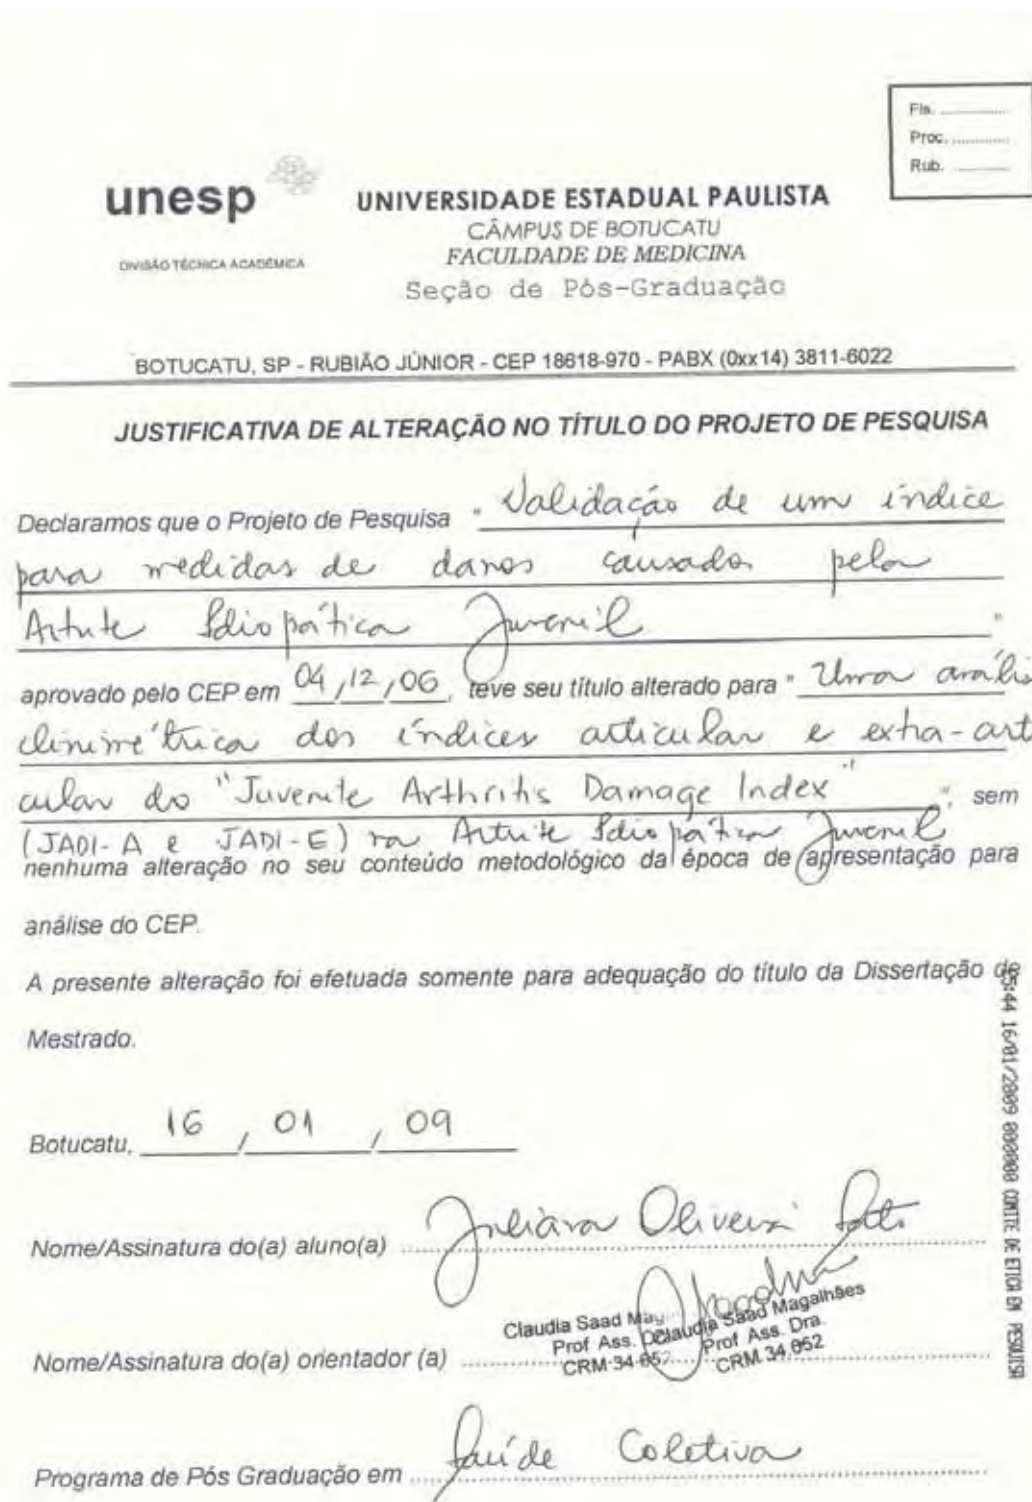 Fls. ................
Proc. ..............
Rub. ..............
unesp
UNIVERSIDADE ESTADUAL PAULISTA
CÂMPUS DE BOTUCATU
DIVISÃO TÉCNICA ACADÊMICA
FACULDADE DE MEDICINA
Seção de Pós-Graduação
BOTUCATU, SP - RUBIÃO JÚNIOR - CEP 18618-970 - PABX (0xx14) 3811-6022
JUSTIFICATIVA DE ALTERAÇÃO NO TÍTULO DO PROJETO DE PESQUISA
Declaramos que o Projeto de Pesquisa " Validação de um índice
para medidas de danos causados pela
Artrite Idiopática Juvenil "
aprovado pelo CEP em 04/12/06, teve seu título alterado para " Uma anális
clinimétrica dos índices articular e extra-art
cular do "Juvenile Arthritis Damage Index" ", sem
(JADI-A e JADI-E) na Artrite Idiopática Juvenil
nenhuma alteração no seu conteúdo metodológico da época de apresentação para
análise do CEP.
A presente alteração foi efetuada somente para adequação do título da Dissertação de
Mestrado.
Botucatu, 16 / 01 / 09
Nome/Assinatura do(a) aluno(a) Juliana Oliveira
Claudia Saad Magalhães
Prof Ass. Dra.
CRM 34.652
Claudia Saad
Prof. Ass.
CRM 34.652
Nome/Assinatura do(a) orientador (a)
Programa de Pós Graduação em Saúde Coletiva
:44 16/01/2009 000000 COMITE DE ETICA EM PESQUISA